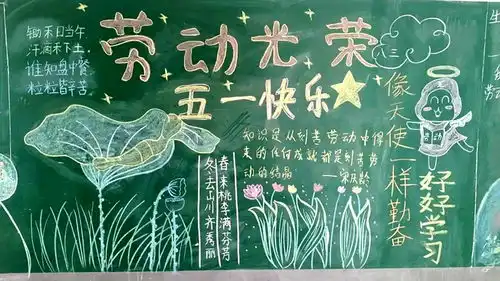 锄禾日当午
汗滴禾下土
谁知盘中餐
粒粒皆辛苦
劳动光荣
五一快乐
八二
知识是从刻苦劳动中得
来的任何成就都是刻苦劳
动的结晶
——宋庆龄
春来桃李满芬芳
冬去山川齐秀丽
像天使一样勤奋
劳动
好好学习